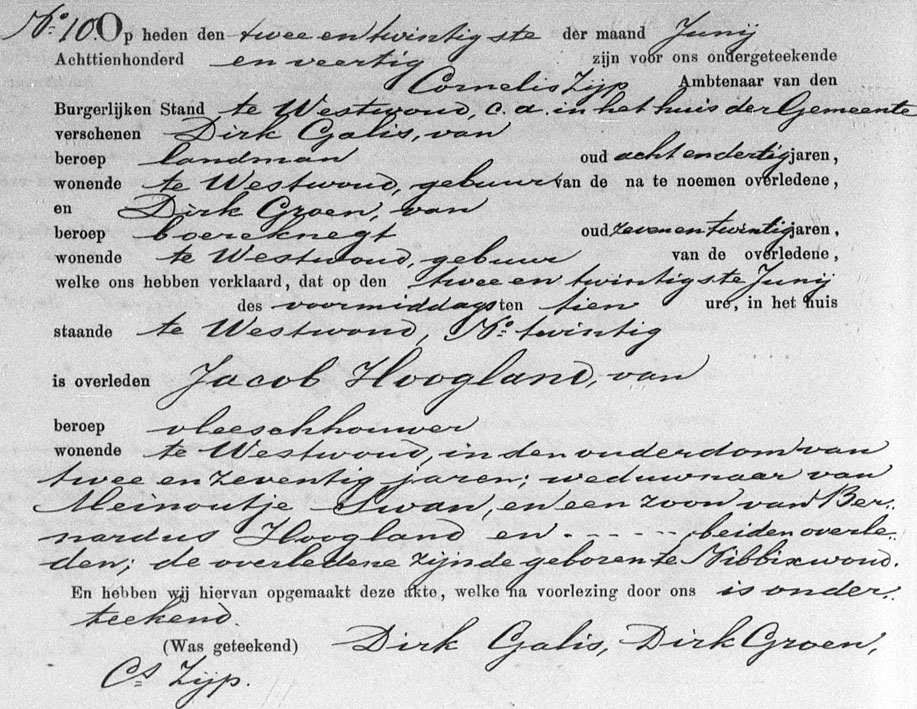 No. 10. Op heden den twee en twintigste der maand Junij
Achttienhonderd en veertig zijn voor ons ondergeteekende
Cornelis Zijp Ambtenaar van den
Burgerlijken Stand te Westwoud, c. a. in het huis der Gemeente
verschenen Dirk Galis, van
beroep landman oud acht en dertig jaren,
wonende te Westwoud, gebuur van de na te noemen overledene,
en Dirk Groen, van
beroep boereknegt oud zeven en twintig jaren,
wonende te Westwoud, gebuur van de overledene,
welke ons hebben verklaard, dat op den twee en twintigste Junij
des voormiddags ten tien ure, in het huis
staande te Westwoud, No. twintig
is overleden Jacob Hoogland, van
beroep vleeschhouwer
wonende te Westwoud, in den ouderdom van
twee en zeventig jaren; weduwnaar van
Meinoutje Swan, en een zoon van Ber-
nardus Hoogland en - - - - - beiden overle-
den; de overledene zijnde geboren te Nibbixwoud.
En hebben wij hiervan opgemaakt deze akte, welke na voorlezing door ons is onder-
teekend.
(Was geteekend) Dirk Galis, Dirk Groen,
Cs Zijp.